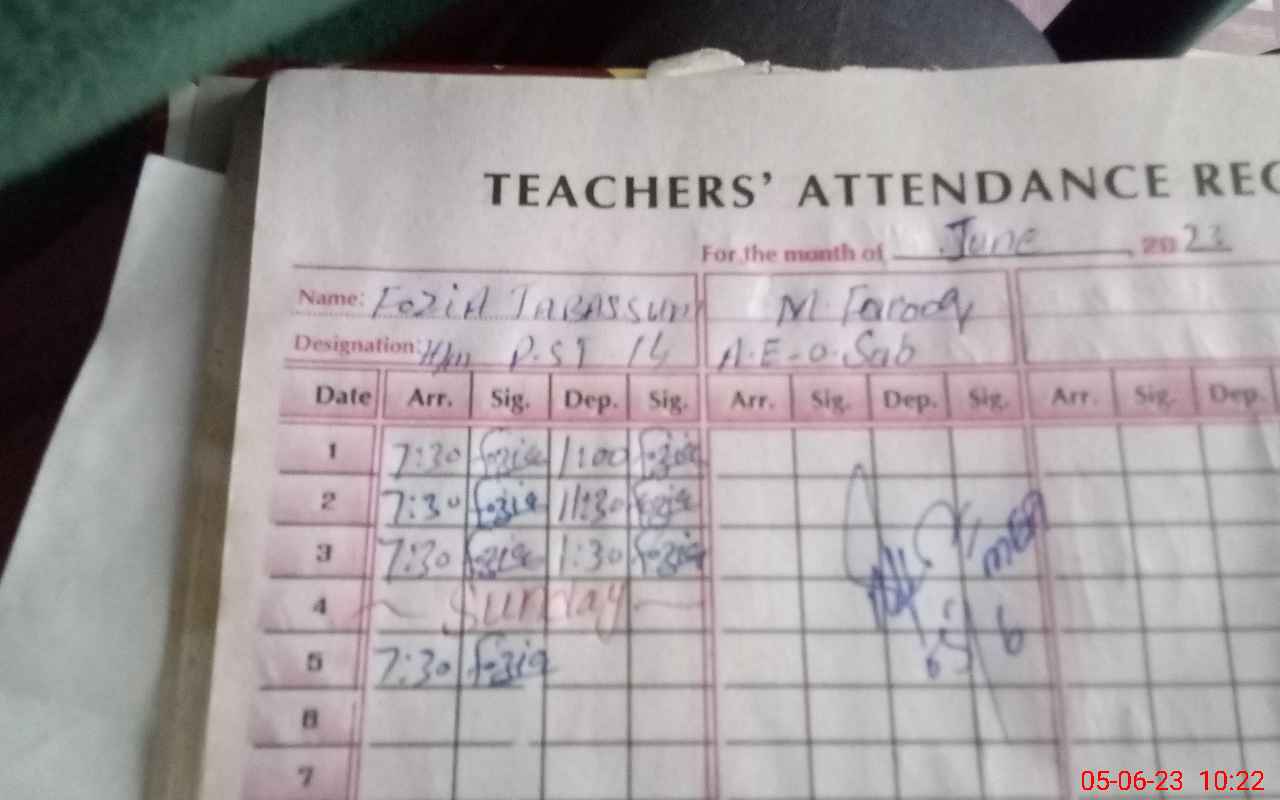 TEACHERS' ATTENDANCE REC
For the month of June 2023
Name: Fozia Tabassum M. Farooq
Designation: H/m P.ST 14 A.E-O-Sab
Date Arr. Sig. Dep. Sig. Arr. Sig. Dep. Sig. Arr. Sig. Dep.
1 7:30 fozia 1:00 fozia
2 7:30 fozia 11:30 fozia
3 7:30 fozia 1:30 fozia
4 Sunday
5 7:30 fozia
6
7
MEA
05-06-23 10:22